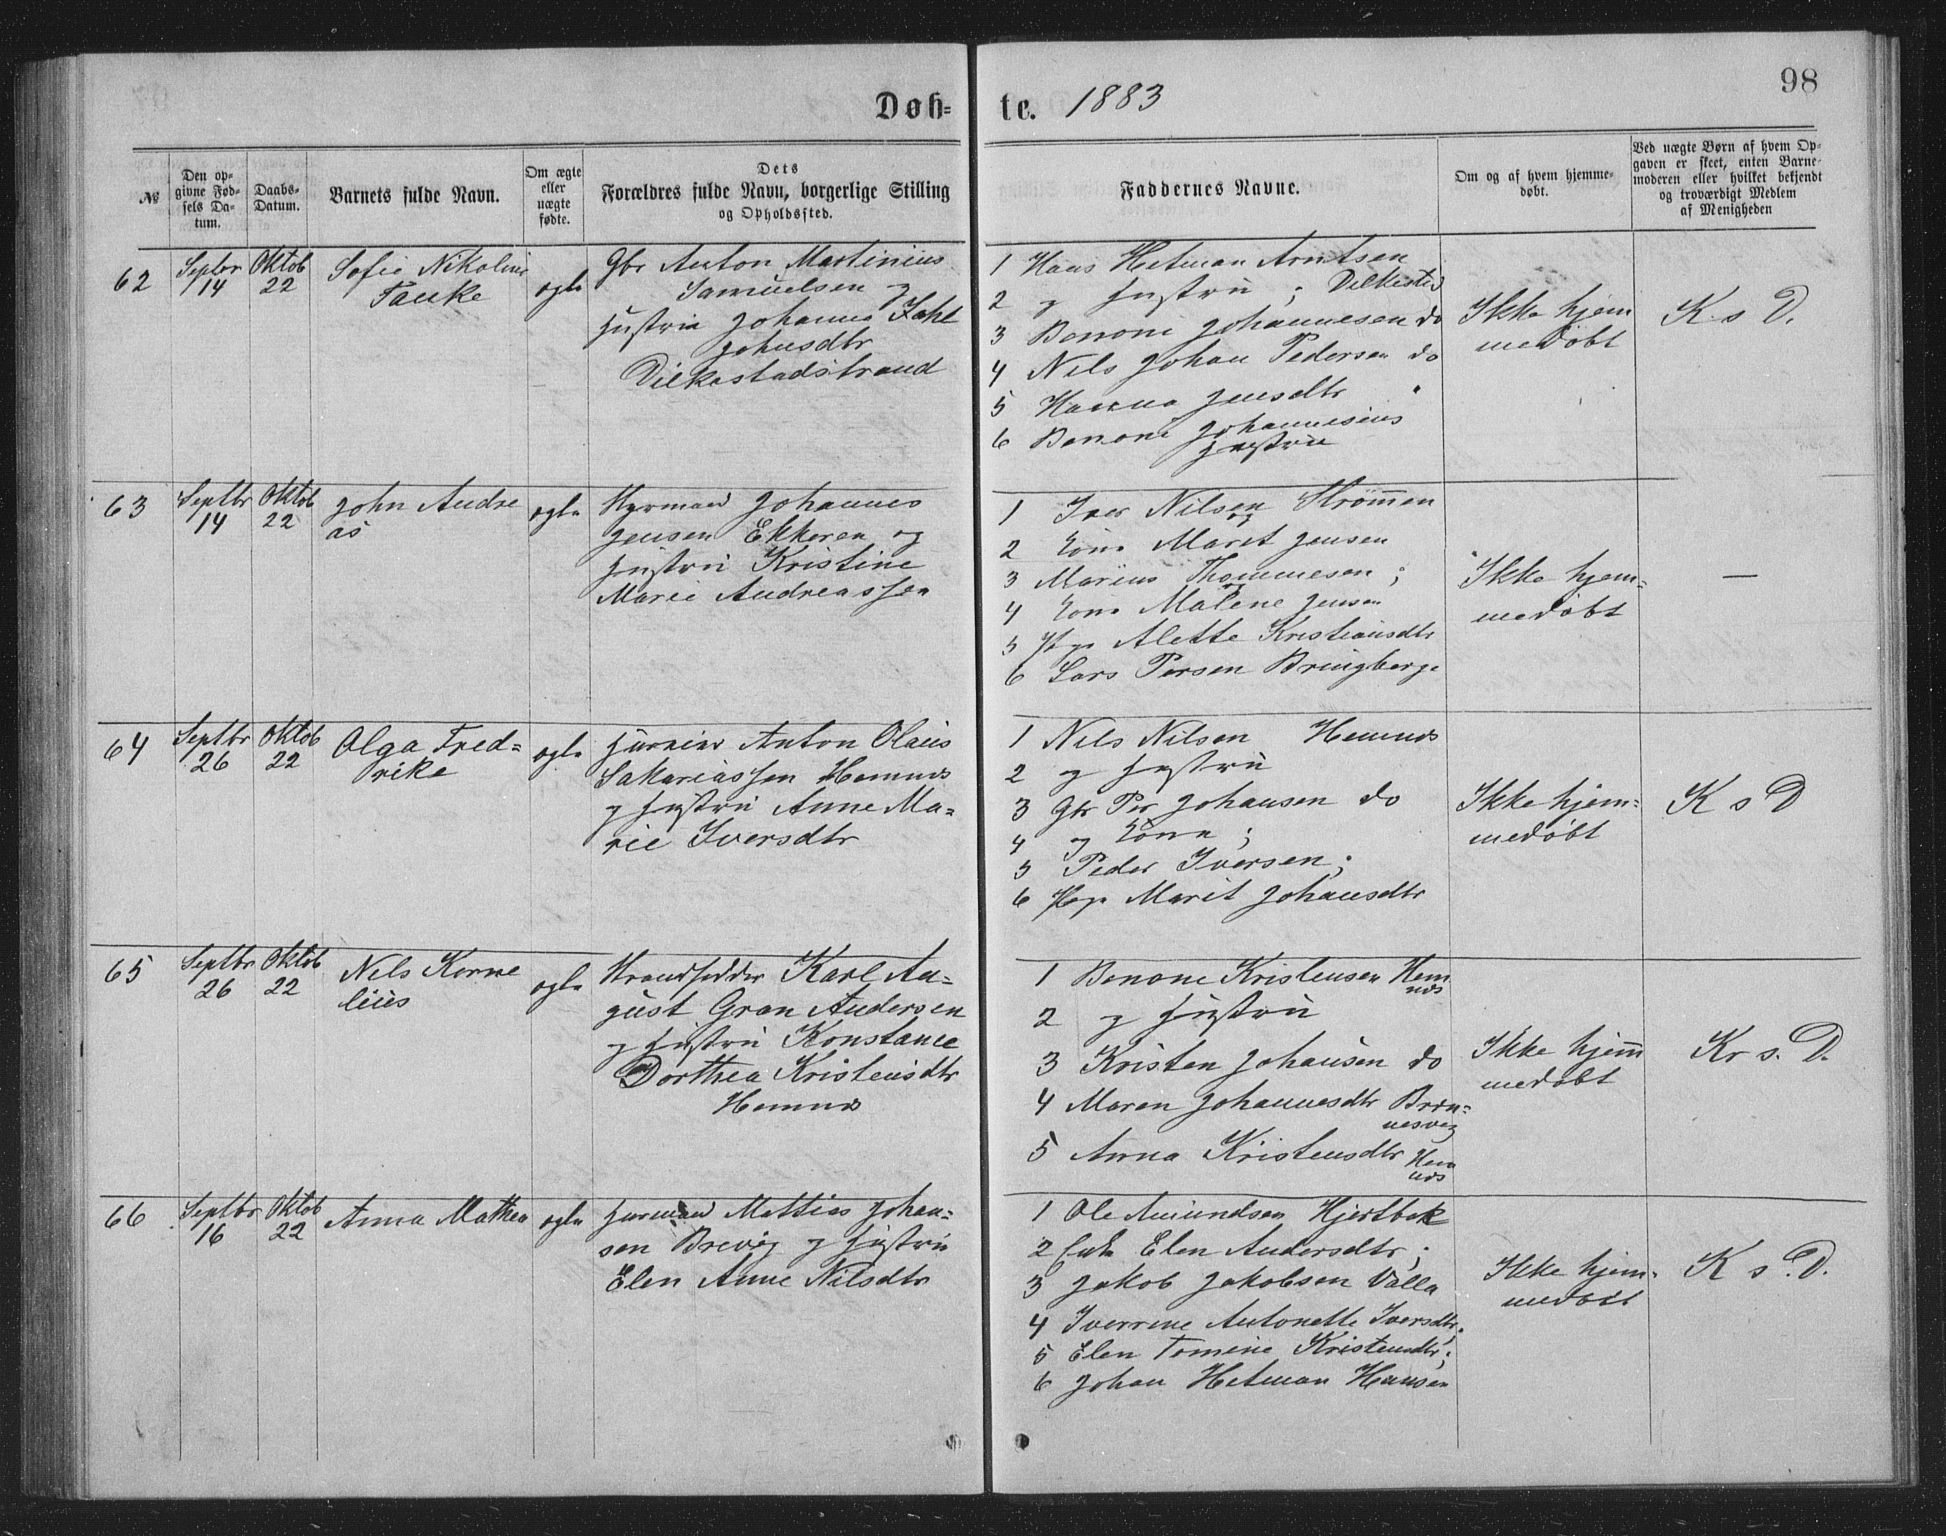 98
Døb-
te. 1883
№
Den op-
givne Fød-
sels Da-
tum.
Daabs-
Datum.
Barnets fulde Navn.
Om ægte
eller
uægte
fødte.
Dets
Forældres fulde Navn, borgerlige Stilling
og Opholdssted.
Faddernes Navne.
Om og af hvem hjemme-
døbt.
Ved uægte Børn af hvem Op-
gaven er skeet, enten Barne-
moderen eller hvilket bekjendt
og troværdigt Medlem
af Menigheden
62
Septbr
14
Oktob
22
Sofie Nikoline
Fauke
Gbr Anton Martinius
Samuelsen og
Hustru Johanna
Johnsdtr
Dilkestadstrand
1 Hans Hetman Arntsen
2 og Hustru ; Dilkestad
3 Benoni Johannesen do
4 Nils Johan Pedersen do
5 Hanna Jensdtr "
6 Benoni Johannesens
Hustru
Ikke hjem
medøbt
K. s D.
63
Septbr
14
Oktob
22
John Andre
as
Johannes
Jensen Ekkeren og
Hustru Kristine
Marie Andreassen
1 Iver Nilsen Strømmen
og
2 Kone Maret Jensen
3 Marius Thommesen ;
og
4 Kone Malene Jensen
5 Pige Alette Kristiansdtr
6 Lars Persen Bringberge
Ikke hjem-
medøbt
—
64
Septbr
26
Oktob
22
Olga Fred-
rike
Anton Olaus
Sakariassen Hemnes
og Hustru Anne Ma-
rie Iversdtr
1 Nils Nilsen Hemnes
2 og Hustru
3 Gbr Per Johansen do
4 og Kone ;
5 Peder Iversen ;
6 Pige Marit Johansdtr
Ikke hjem-
medøbt
K s D
65
Septbr
26
Oktob
22
Nils Korne
lius
Strandsidder Karl Au-
gust Gran Andersen
og Hustru Konstance
Dorthea Kristensdtr
Hemnes
1 Benone Kristensen Hem
nes
2 og Hustru
3 Kristen Johansen do
4 Maren Johannesdtr Brøn-
nesvig
5 Anna Kristensdtr Hem
nes
Ikke hjem
medøbt
Kr s. D.
66
Septbr
16
Oktob
22
Anna Mathea
Mattias Johan-
sen Brevig og Hustru
Elen Anne Nilsdtr
1 Ole Amundsen Hjertbak
2 Elen Andersdtr ;
3 Jakob Jakobsen Valla
4 Iverrine Antonette Iversdtr.
5 Elen Tomine Kristensdtr ;
6 Johan Hetman Hansen
Ikke hjem-
medøbt
K s. D.